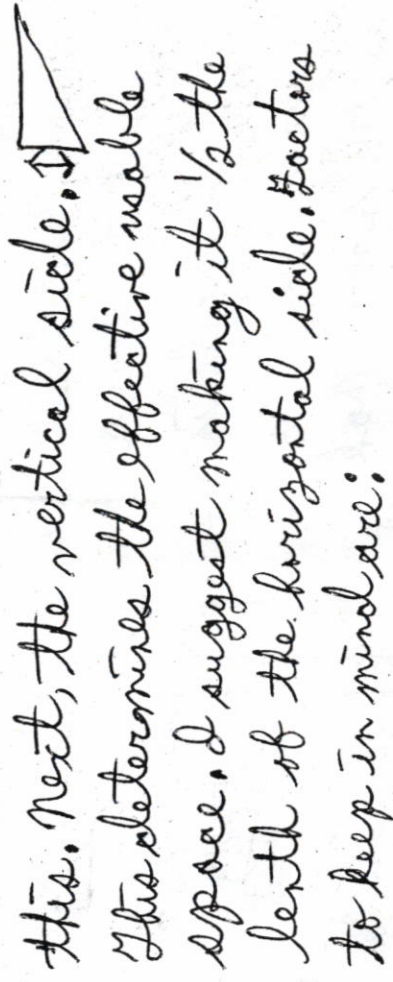 this. Next, the vertical side.
This determines the effective usable
space. I suggest making it 1/2 the
lenth of the horizontal side. Factors
to keep in mind are: